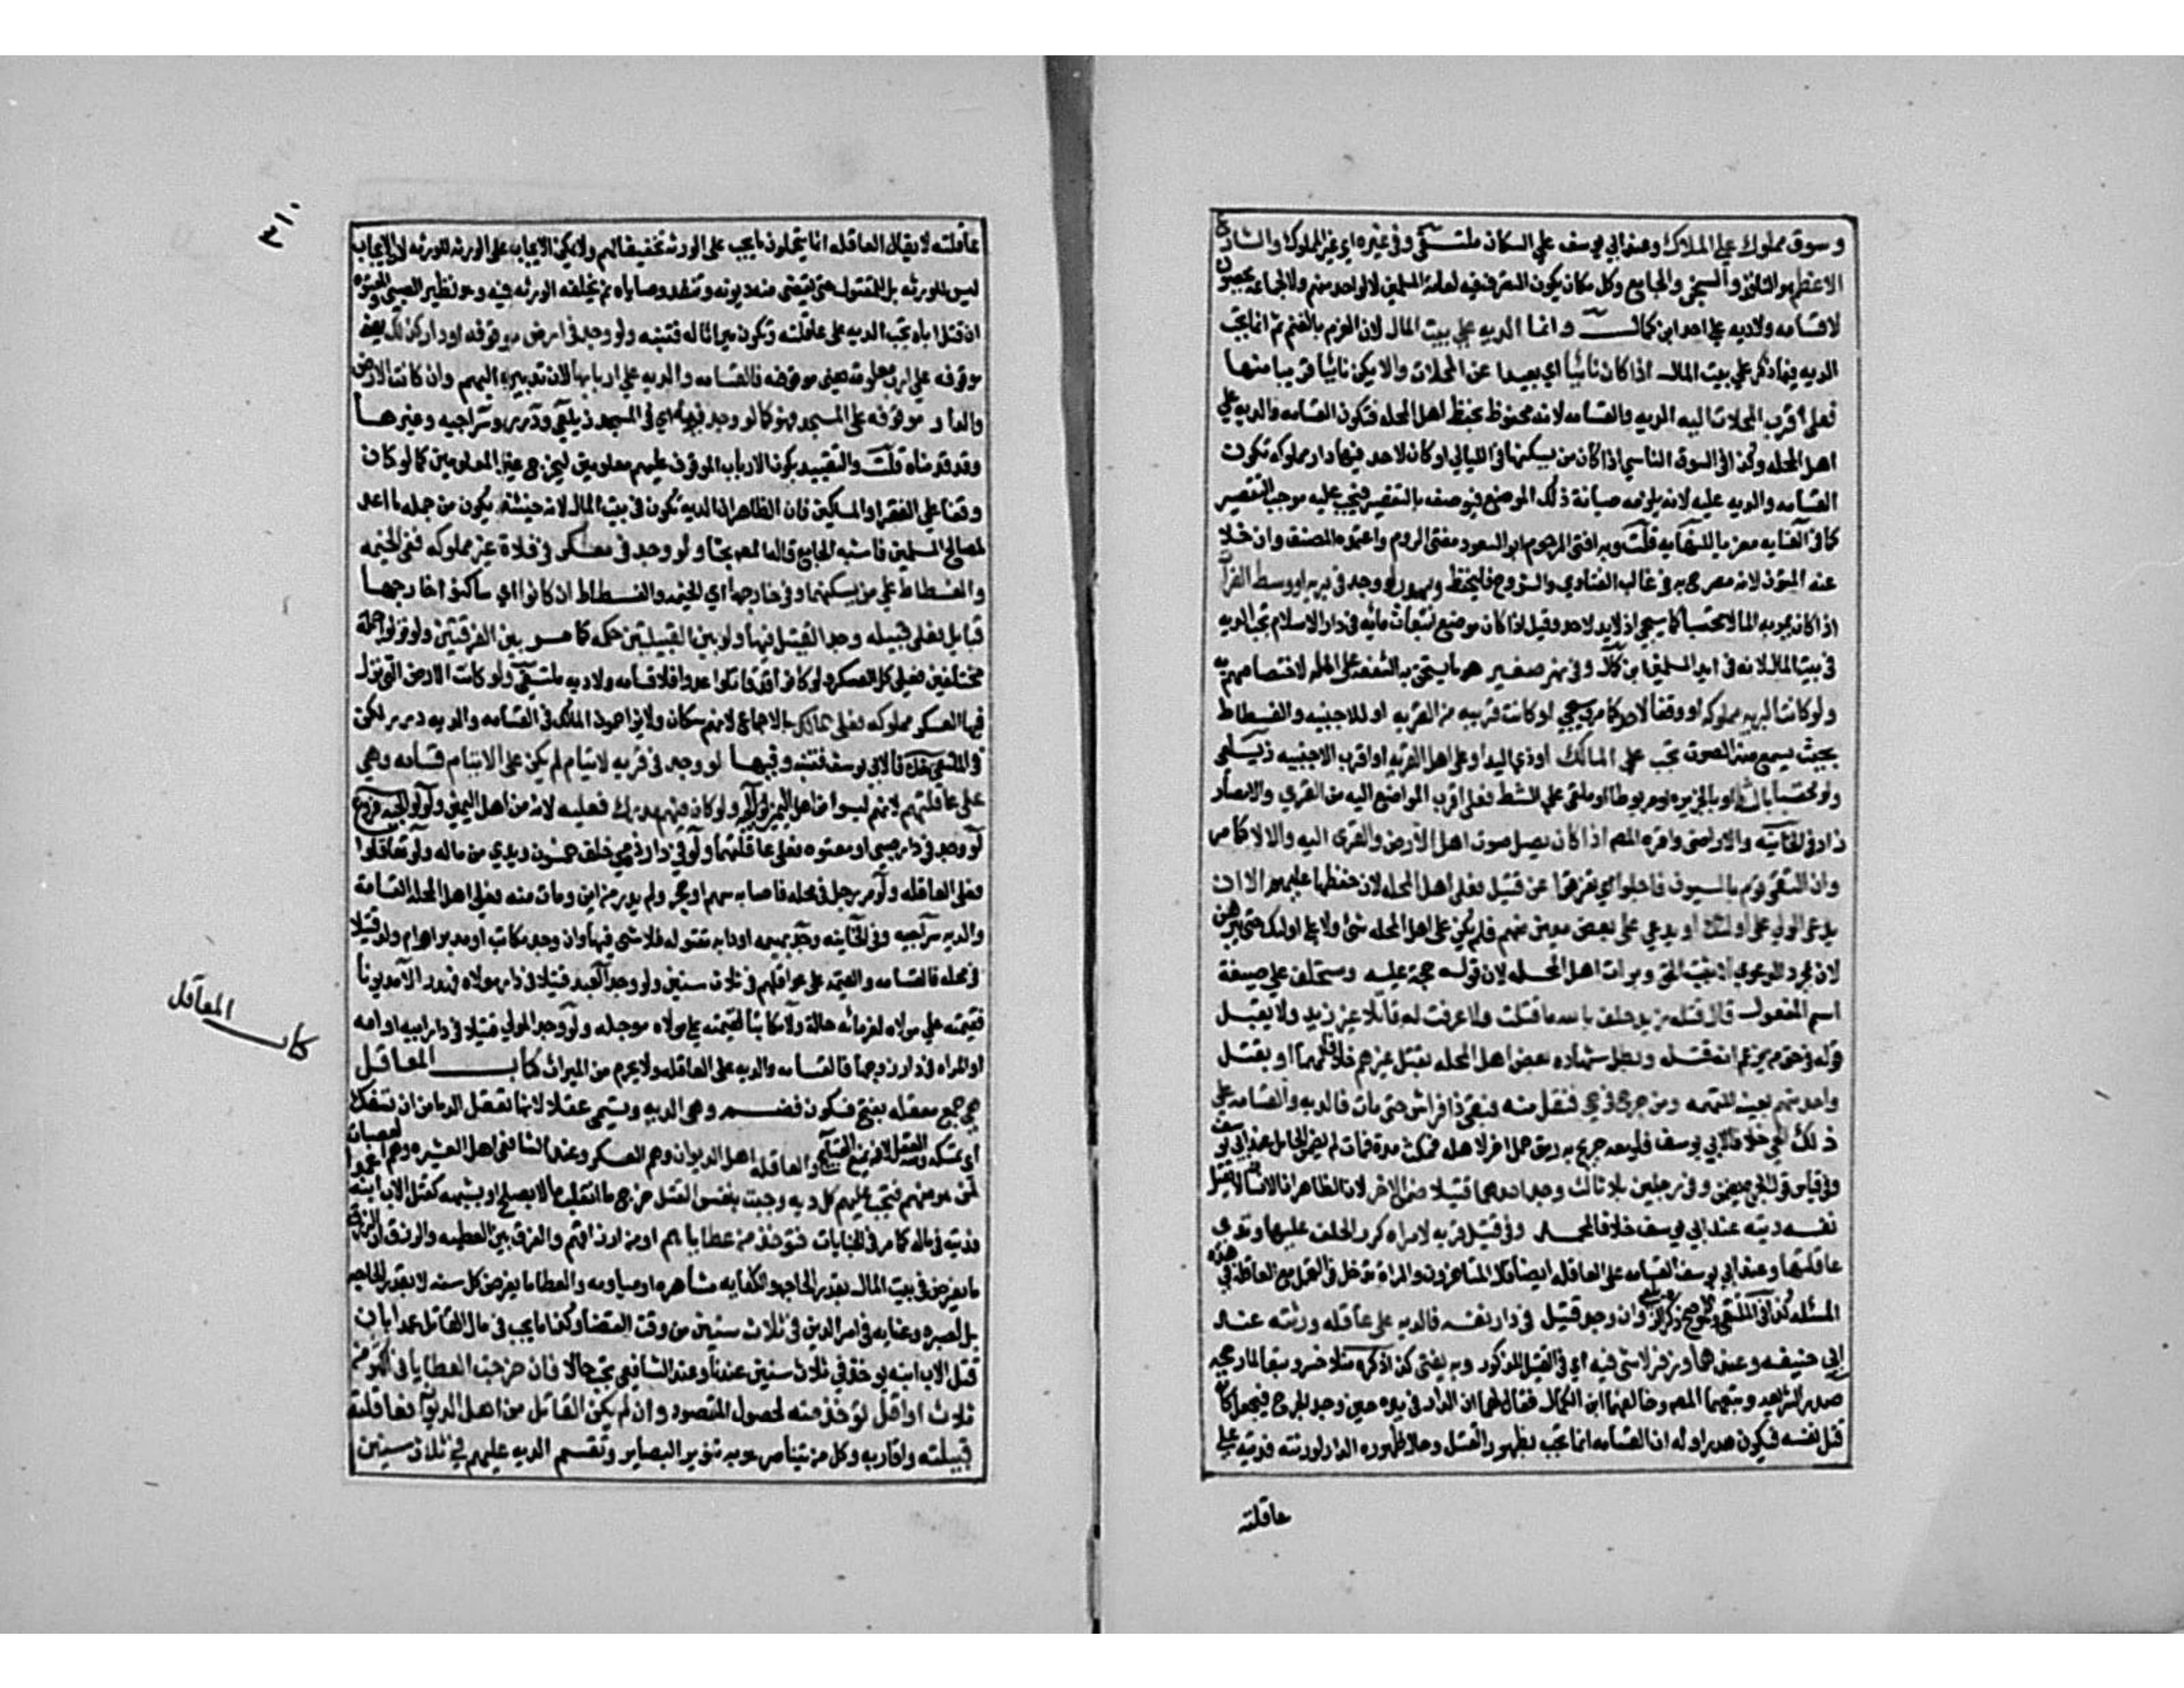 وسوق مملوك على الملاك وعند ابي يوسف على السكان ملتقى وفي غيره اي غير المملوك والشارع
الاعظم هو النافذ والسجن والجامع وكل مكان يكون التصرف فيه لعامة المسلمين لا لواحد منهم ولا لجماعه يحصون
لا قسامه ولا ديه على احد ابن كمال وانما الديه على بيت المال لان الغرم بالغنم ثم انما تجب
الديه فيما ذكر على بيت المال اذا كان نائيا اي بعيدا عن المحلات والا يكن نائيا قريبا منها
فعلى اقرب المحلات اليه الديه والقسامه لانه محفوظ بحفظ اهل المحله فتكون القسامه والديه على
اهل المحله وكذا في السوق النائي اذا كان من يسكنها في الليالي او كان لاحد فيها دار مملوكه تكون
القسامه والديه عليه لانه يلزمه صيانة ذلك الموضع فيوصف بالتقصير فيجب عليه موجب التقصير
كما في العنايه معزيا للنهايه قلت وبه افتى المرحوم ابو السعود مفتي الروم واعتمده المصنف وان خلا
عنه المتون لانه مصرح به في غالب الفتاوي والشروح فليحفظ ويهدر لو وجد في بريه او وسط الفرات
اذا كان يمر به الماء لا محتبسا كما سيجي اذ لا يد لاحد وقيل اذا كان موضع انبعاث مائه في دار الاسلام تجب الديه
في بيت المال لانه في ايدي المسلمين ابن كمال وفي نهر صغير هو ما يستحق به الشفعه على اهله لاختصاصهم به
ولو كانت البريه مملوكه او وقفا لاحد كما مر ويجي او كانت قريبه من القريه او للاجنيه والفسطاط
بحيث يسمع منه الصوت تجب على المالك او ذي اليد او على اهل القريه او اقرب الاجنيه زيلعي
ولو محتبسا بالشط او بالجزيره او مربوطا او ملقى على الشط فعلى اقرب المواضع اليه من القرى والامصار
زاد في الخانيه والاراضي واقره المصنف اذا كان يصل صوت اهل الارض والقرى اليه والا لا كما مر
وان التقى قوم بالسيوف فاجلوا اي تفرقوا عن قتيل فعلى اهل المحله لان حفظها عليهم الا ان
يدعي الولي على اولئك او يدعي على بعض معين منهم فلم يكن على اهل المحله شئ ولا على اولئك حتى يبرهن
لان بمجرد الدعوي لا يثبت الحق وبرات اهل المحله لان قوله حجة عليه ومستحلف على صيغة
اسم المفعول قال قتله زيد حلف بالله ما قتلت ولا عرفت له قاتلا غير زيد ولا يقبل
قوله في حق من يزعم انه قتله وبطل شهاده بعض اهل المحله بقتل غيرهم خلافا لهما او بقتل
واحد منهم بعينه للتهمه ومن جرح في حي فنقل منه فبقي ذا فراش حتى مات فالديه والقسامه على
ذلك الحي خلافا لابي يوسف فلو معه جريح به رمق حمل اخر لاهله فمكث مدة فمات لم يضمن الحامل عند ابي يوسف
وفي قياس قول ابي حنيفه يضمن وفي رجلين بلا ثالث وجد احدهما قتيلا ضمن الاخر لان الظاهر ان الانسان لا يقتل
نفسه ديته عند ابي يوسف خلافا لمحمد وفي قتيل قريه لامراه كرر الحلف عليها وتدي
عاقلتها وعند ابي يوسف القسامه على العاقله ايضا قال المتاخرون والمراة تدخل في التحمل مع العاقله في هذه
المسئله كذا في الملتقى وهو الاصح ذكره الزيلعي وان وجد قتيل في دار نفسه فالديه على عاقله ورثته عند
ابي حنيفه وعندهما وزفر لا شي فيه اي في القتيل المذكور وبه يفتى كذا ذكره منلا خسرو تبعا لما رجحه
صدر الشريعه وتبعهما المصنف وخالفهما ابن الكمال فقال لهما ان الدار في يده حين وجد الجرح فيجعل كانه
قتل نفسه فيكون هدرا وله ان القسامه انما تجب بظهور القتل وحال ظهوره الدار لورثته فديته على
عاقلته
٣١٠
عاقلته لا يقال العاقله انما يتحملون ما يجب على الورثه تخفيفا لهم ولا يمكن الايجاب على الورثه للورثه لان الايجاب
ليس للورثه بل للمقتول حتى تقضى منه ديونه وتنفذ وصاياه ثم يخلفه الورثه فيه وهو نظير الصبي والمعتوه
ان قتل اباه تجب الديه على عاقلته وتكون ميراثا له فتنبه ولو وجد في ارض موقوفه او دار كذلك يعني
موقوفه على ارباب معلومة يعني موقوفه فالقسامه والديه على اربابها لان تدبيره اليهم وان كانت الارض
والدار موقوفه على المسجد فهو كما لو وجد فيه اي في المسجد زيلعي ودرر وسراجيه وغيرها
وقد قدمناه قلت والتقييد بكون الارباب الموقوف عليهم معلومين ليخرج غير المعلومين كما لو كان
وقفا على الفقرا والمساكين فان الظاهر ان الديه تكون في بيت المال لانه حينئذ يكون من جمله ما اعد
لمصالح المسلمين فاشبه الجامع قاله المصنف بحثا ولو وجد في معسكر في فلاة غير مملوكه ففي الخيمه
والفسطاط على من يسكنهما وفي خارجها اي الخيمه والفسطاط ان كانوا اي ساكنوا خارجها
قبايل فعلى قبيله وجد القتيل فيها ولو بين القبيلتين حكمه كما مر بين القريتين ولو نزلوا جملة
مختلفين فعلى كل العسكر ولو كانوا قد قاتلوا عدوا فلا قسامه ولا ديه ملتقى ولو كانت الارض التي نزل
فيها العسكر مملوكه فعلى المالك بالاجماع لانهم سكان ولا يزاحمون المالك في القسامه والديه درر لكن
في الملتقى خلافا لابي يوسف فتنبه وفيها لو وجد في قريه لايتام لم يكن على الايتام قسامه وهي
على عاقلتهم لانهم ليسوا من اهل اليمين ولو كان فيهم مدرك فعليه لانه من اهل اليمين ولوالجيه فروع
لو وجد في دار صبي او معتوه فعلى عاقلتهما ولو في دار ذمي حلف خمسين ويدي من ماله ولو تعاقلوا
فعلى العاقله ولو مر رجل في محله فاصابه سهم او حجر ولم يدر من اين ومات منه فعلى اهل المحله القسامة
والديه سراجيه وفي الخانيه وجد بهيمه او دابه مقتوله فلا شي فيها وان وجد مكاتب او مدبر او ام ولد قتيلا
في محله فالقسامه والقيمه على عواقلهم في ثلاث سنين ولو وجد العبد قتيلا في دار مولاه فهدر الا مديونا
فقيمته على مولاه لغرمائه حالة والا مكاتبا فقيمته على مولاه موجله ولو وجد المولى قتيلا في دار ابيه او امه
او المراه في دار زوجها فالقسامه والديه على العاقله ولا يحرم من الميراث كتاب المعاقل
هي جمع معقله بفتح فسكون فضم وهي الديه وتسمى عقلا لانها تعقل الدما من ان تسفك
اي تمسكه ومنه العقل لانه يمنع القبايح والعاقله اهل الديوان وهم العسكر وعند الشافعي اهل العشيره وهم العصبات
لمن هو منهم فتجب عليهم كل ديه وجبت بنفس القتل خرج ما انقلب مالا بصلح او بشبهه كقتل الاب ابنه
فديته في ماله كما مر في الجنايات فتوخذ من عطاياهم او من ارزاقهم والفرق بين العطيه والرزق ان الرزق
ما يفرض في بيت المال بقدر الحاجه والكفايه مشاهره او مياومه والعطا ما يفرض كل سنه لا بقدر الحاجه
بل لصبره وعنايه في امر الدين في ثلاث سنين من وقت القضا وكذا ما يجب في مال القاتل عمدا بان
قتل الاب ابنه يوخذ في ثلاث سنين عندنا وعند الشافعي تجب حالا فان خرجت العطايا في اكثر من
ثلاث او اقل توخذ منه لحصول المقصود وان لم يكن القاتل من اهل الديوان فعاقلته
قبيلته واقاربه وكل من يتناصر هو به تنوير البصاير وتقسم الديه عليهم في ثلاث سنين
كتاب المعاقل